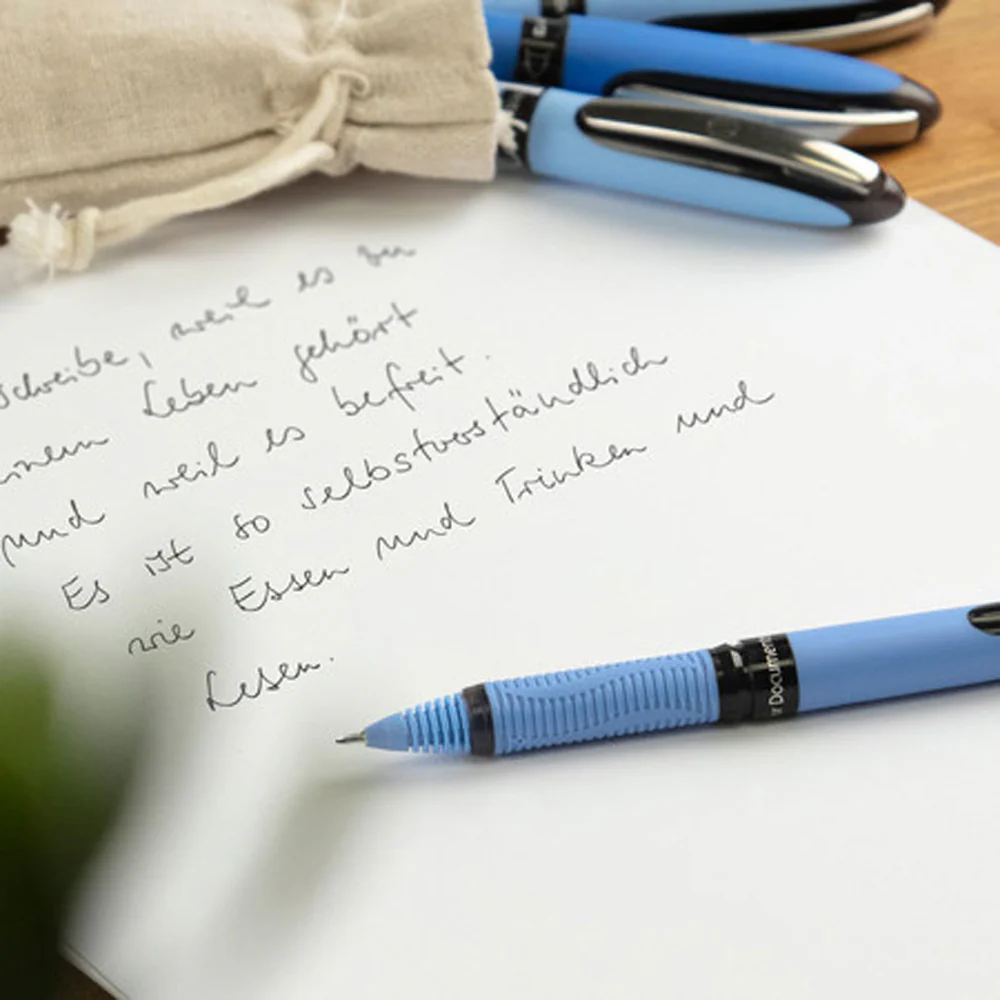 schreibe, weil es zu
einem Leben gehört
und weil es befreit.
Es ist so selbstverständlich
wie Essen und Trinken und
Lesen.
Document